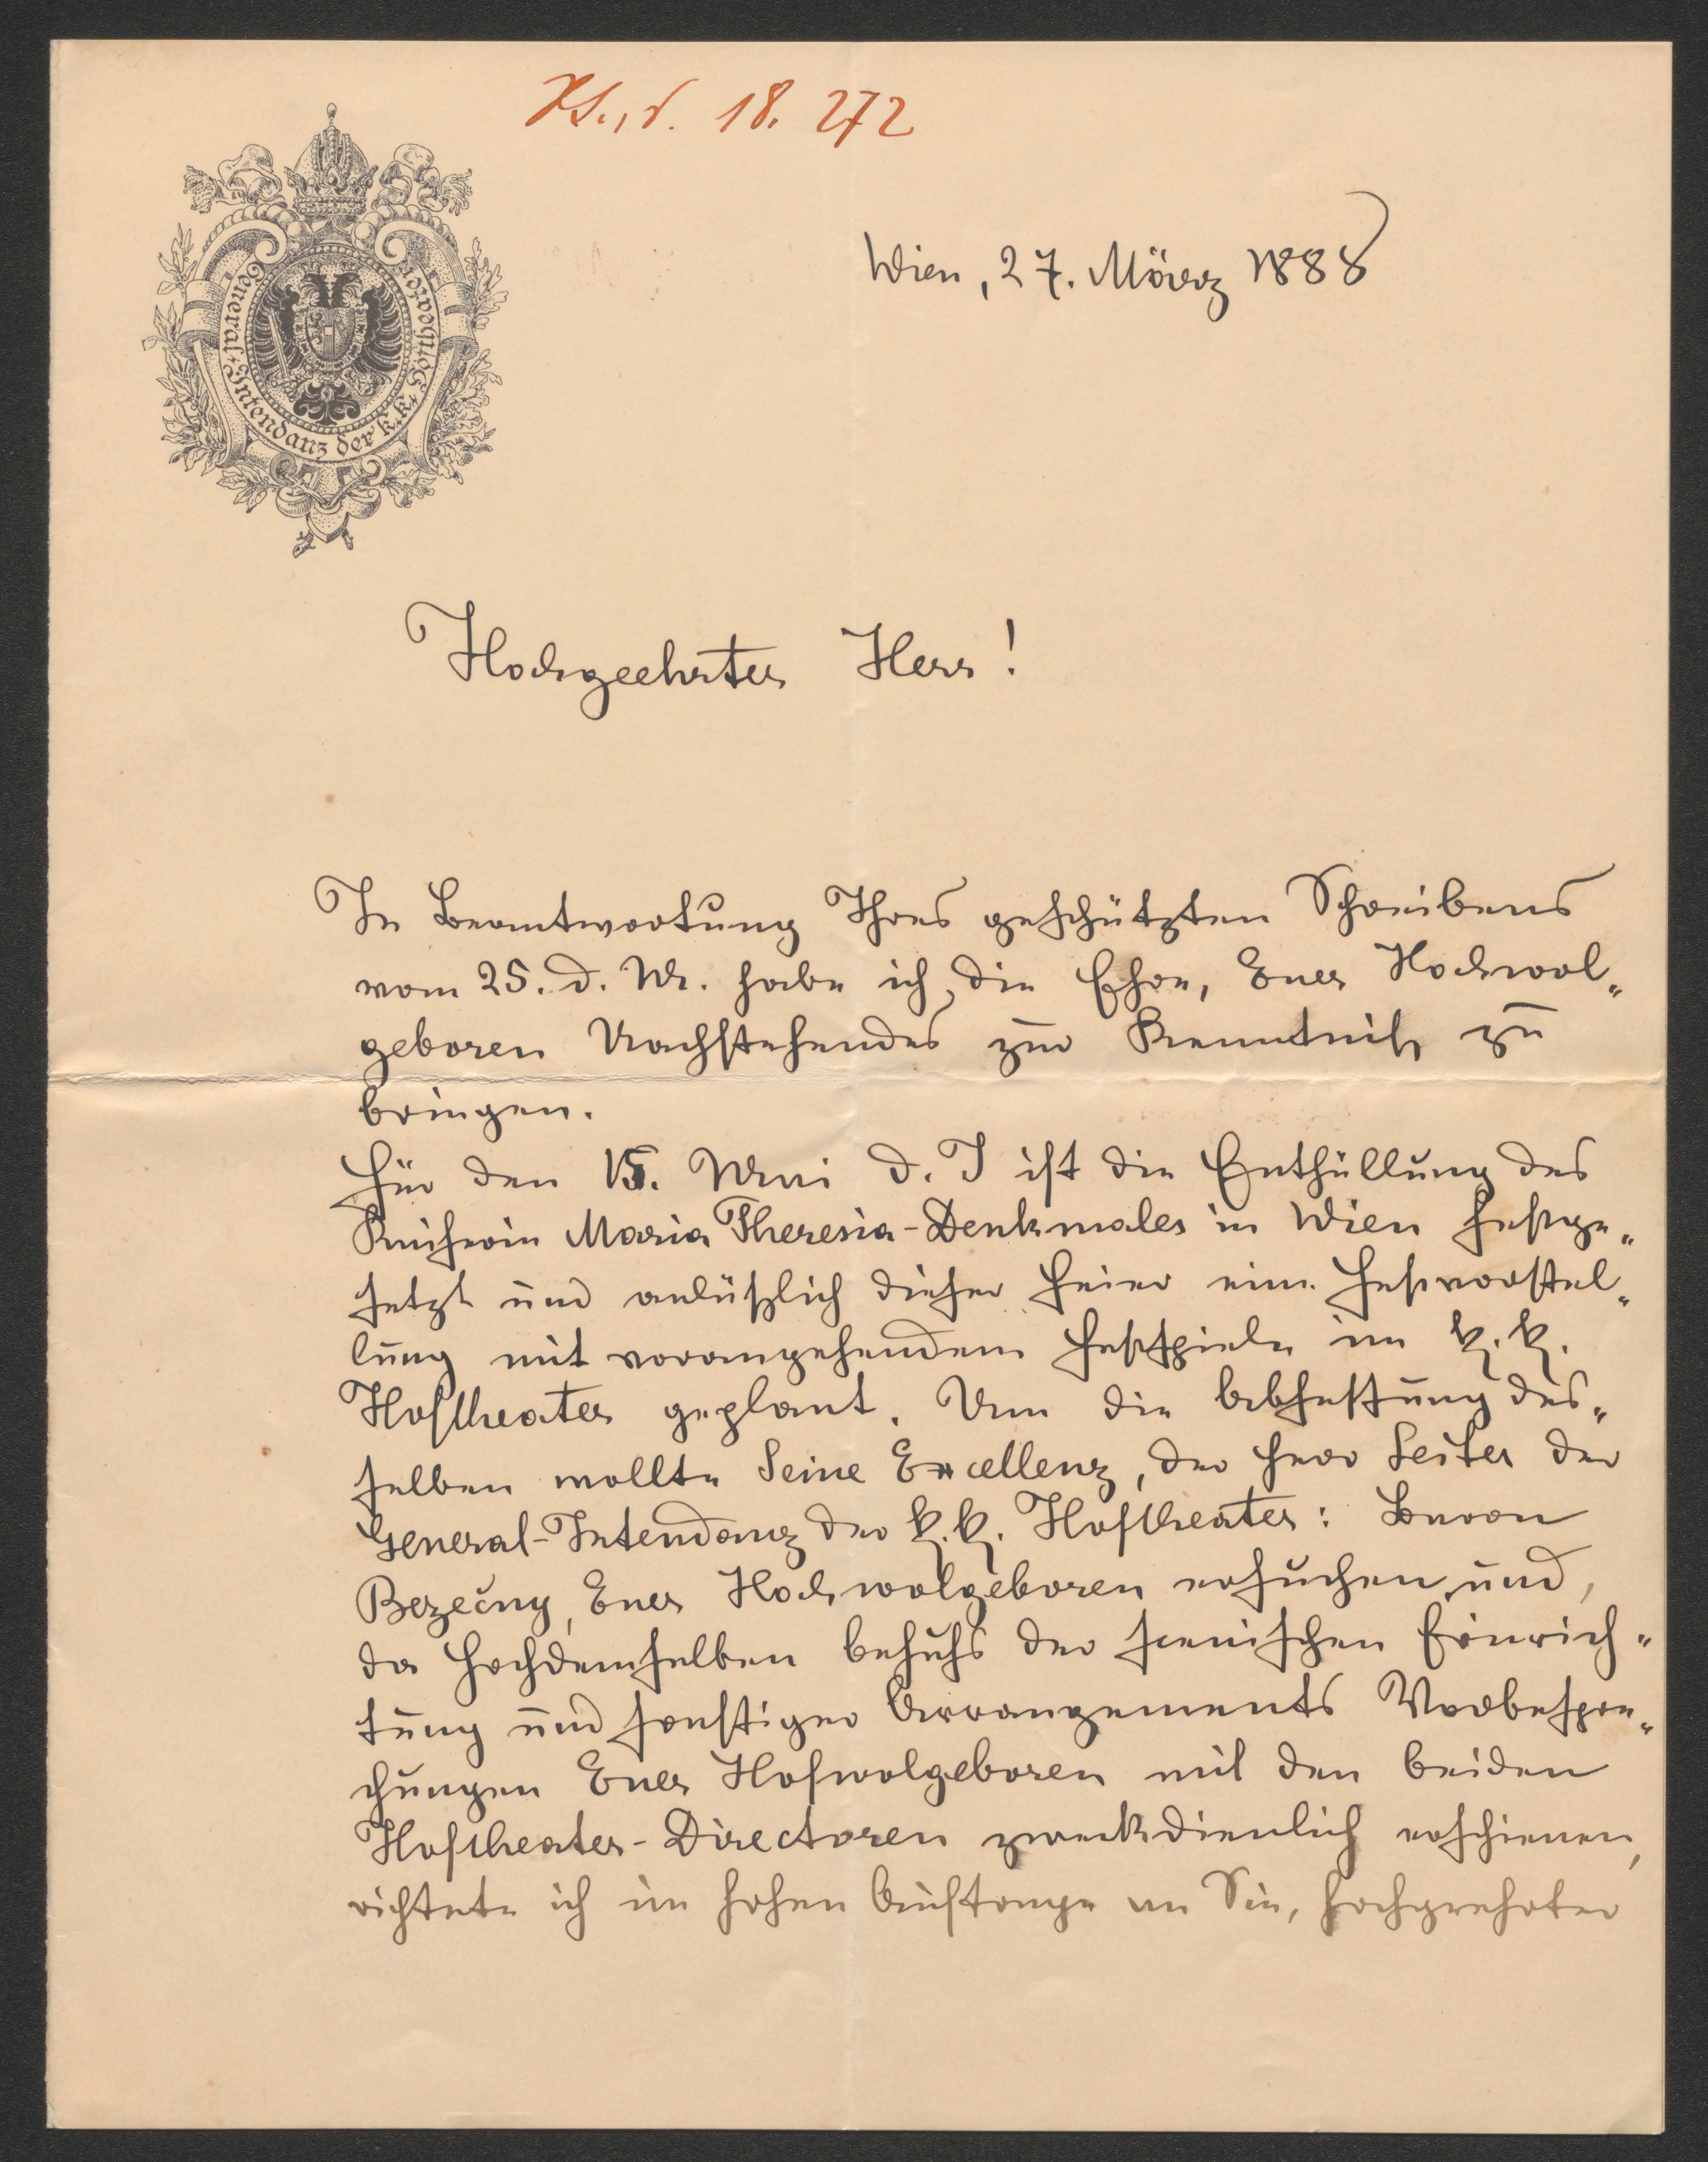 18. 272
General-Intendanz der k. k. Hoftheater
Wien, 27. März 1888
Hochgeehrter Herr!
In Beantwortung Ihres geschätzten Schreibens
vom 25. d. M. habe ich die Ehre, Euer Hochwol„
geboren Nachstehendes zur Kenntniß zu
bringen.
Für den 15. Mai d. J ist die Enthüllung des
Kaiserin Maria Theresia-Denkmales in Wien festge„
setzt und anläßlich dieser Feier eine Festvorstel„
lung mit vorangehendem Festspiele im k. k.
Hoftheater geplant. Um die Abfassung des„
selben wollte Seine Excellenz, der Herr Leiter der
General-Intendanz der k. k. Hoftheater: Baron
Bezečny, Euer Hochwolgeboren ersuchen und,
da Hochdemselben behufs der scenischen Einrich„
tung und sonstiger Arrangements Vorbespre„
chungen Euer Hofwolgeboren mit den beiden
Hoftheater-Directoren zweckdienlich erschienen,
richtete ich im hohen Auftrage an Sie, hochgeehrter